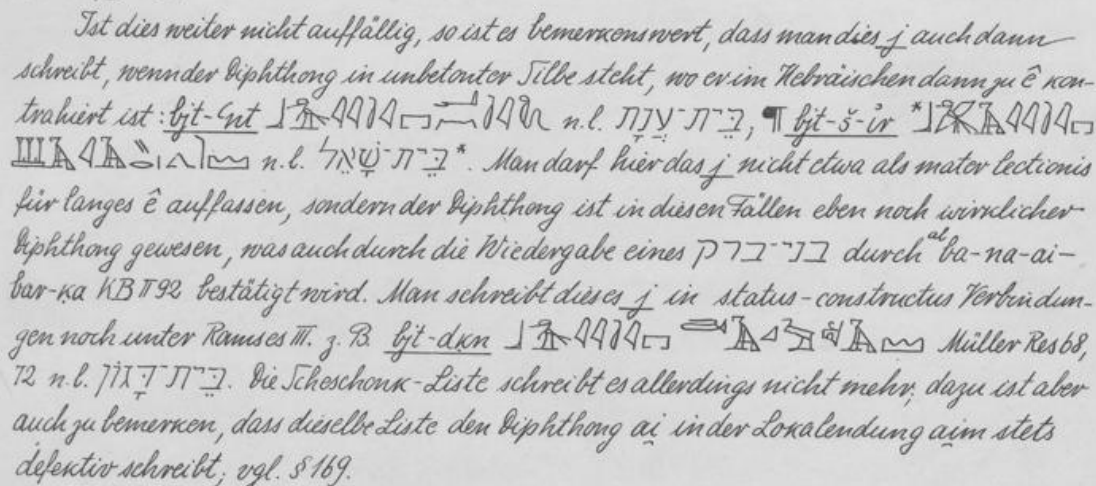 Ist dies weiter nicht auffällig, so ist es bemerkenswert, dass man dies j auch dann
schreibt, wenn der Diphthong in unbetonter Silbe steht, wo er im Hebräischen dann zu ê kon-
trahiert ist: bjt-ꜥnt n.l. בֵּית־עֲנָת, ¶ bjt-š-ỉr *
n.l. בֵּית־שָׁאֵל*. Man darf hier das j nicht etwa als mater lectionis
für langes ê auffassen, sondern der Diphthong ist in diesen Fällen eben noch wirklicher
Diphthong gewesen, was auch durch die Wiedergabe eines בני־ברק durch ᵃˡba-na-ai-
bar-ḳa KB II 92 bestätigt wird. Man schreibt dieses j in status-constructus Verbindun-
gen noch unter Ramses III. z. B. bjt-dḳn Müller Res 68,
72 n.l. בֵּית־דָּגוֹן. Die Scheschonk-Liste schreibt es allerdings nicht mehr; dazu ist aber
auch zu bemerken, dass dieselbe Liste den Diphthong ai̯ in der Lokalendung ai̯m stets
defektiv schreibt; vgl. § 169.